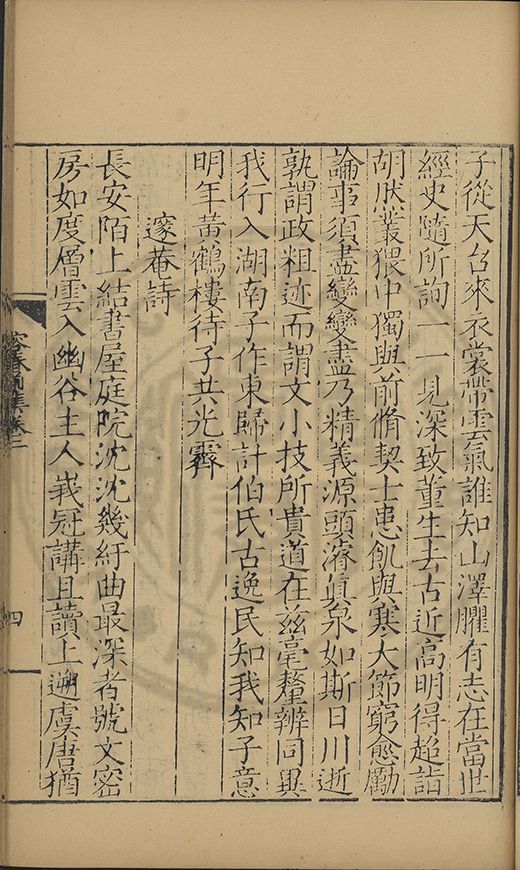 子從天台來衣裳帶雲氣誰知山澤臞有志在當世
經史隨所詢一一見深致董生去古近高明得超詣
胡然叢猥中獨與前脩契士患飢與寒大節窮愈勵
論事須盡變變盡乃精義源頭濬眞泉如斯日川逝
孰謂政粗迹而謂文小技所貴道在茲毫釐辨同異
我行入湖南子作東歸計伯氏古逸民知我知子意
明年黃鶴樓待子共光霽
邃菴詩
長安陌上結書屋庭院沈沈幾紆曲最深者號文密
房如度層雲入幽谷主人峩冠講且讀上遡虞唐猶
容春前集卷二
四